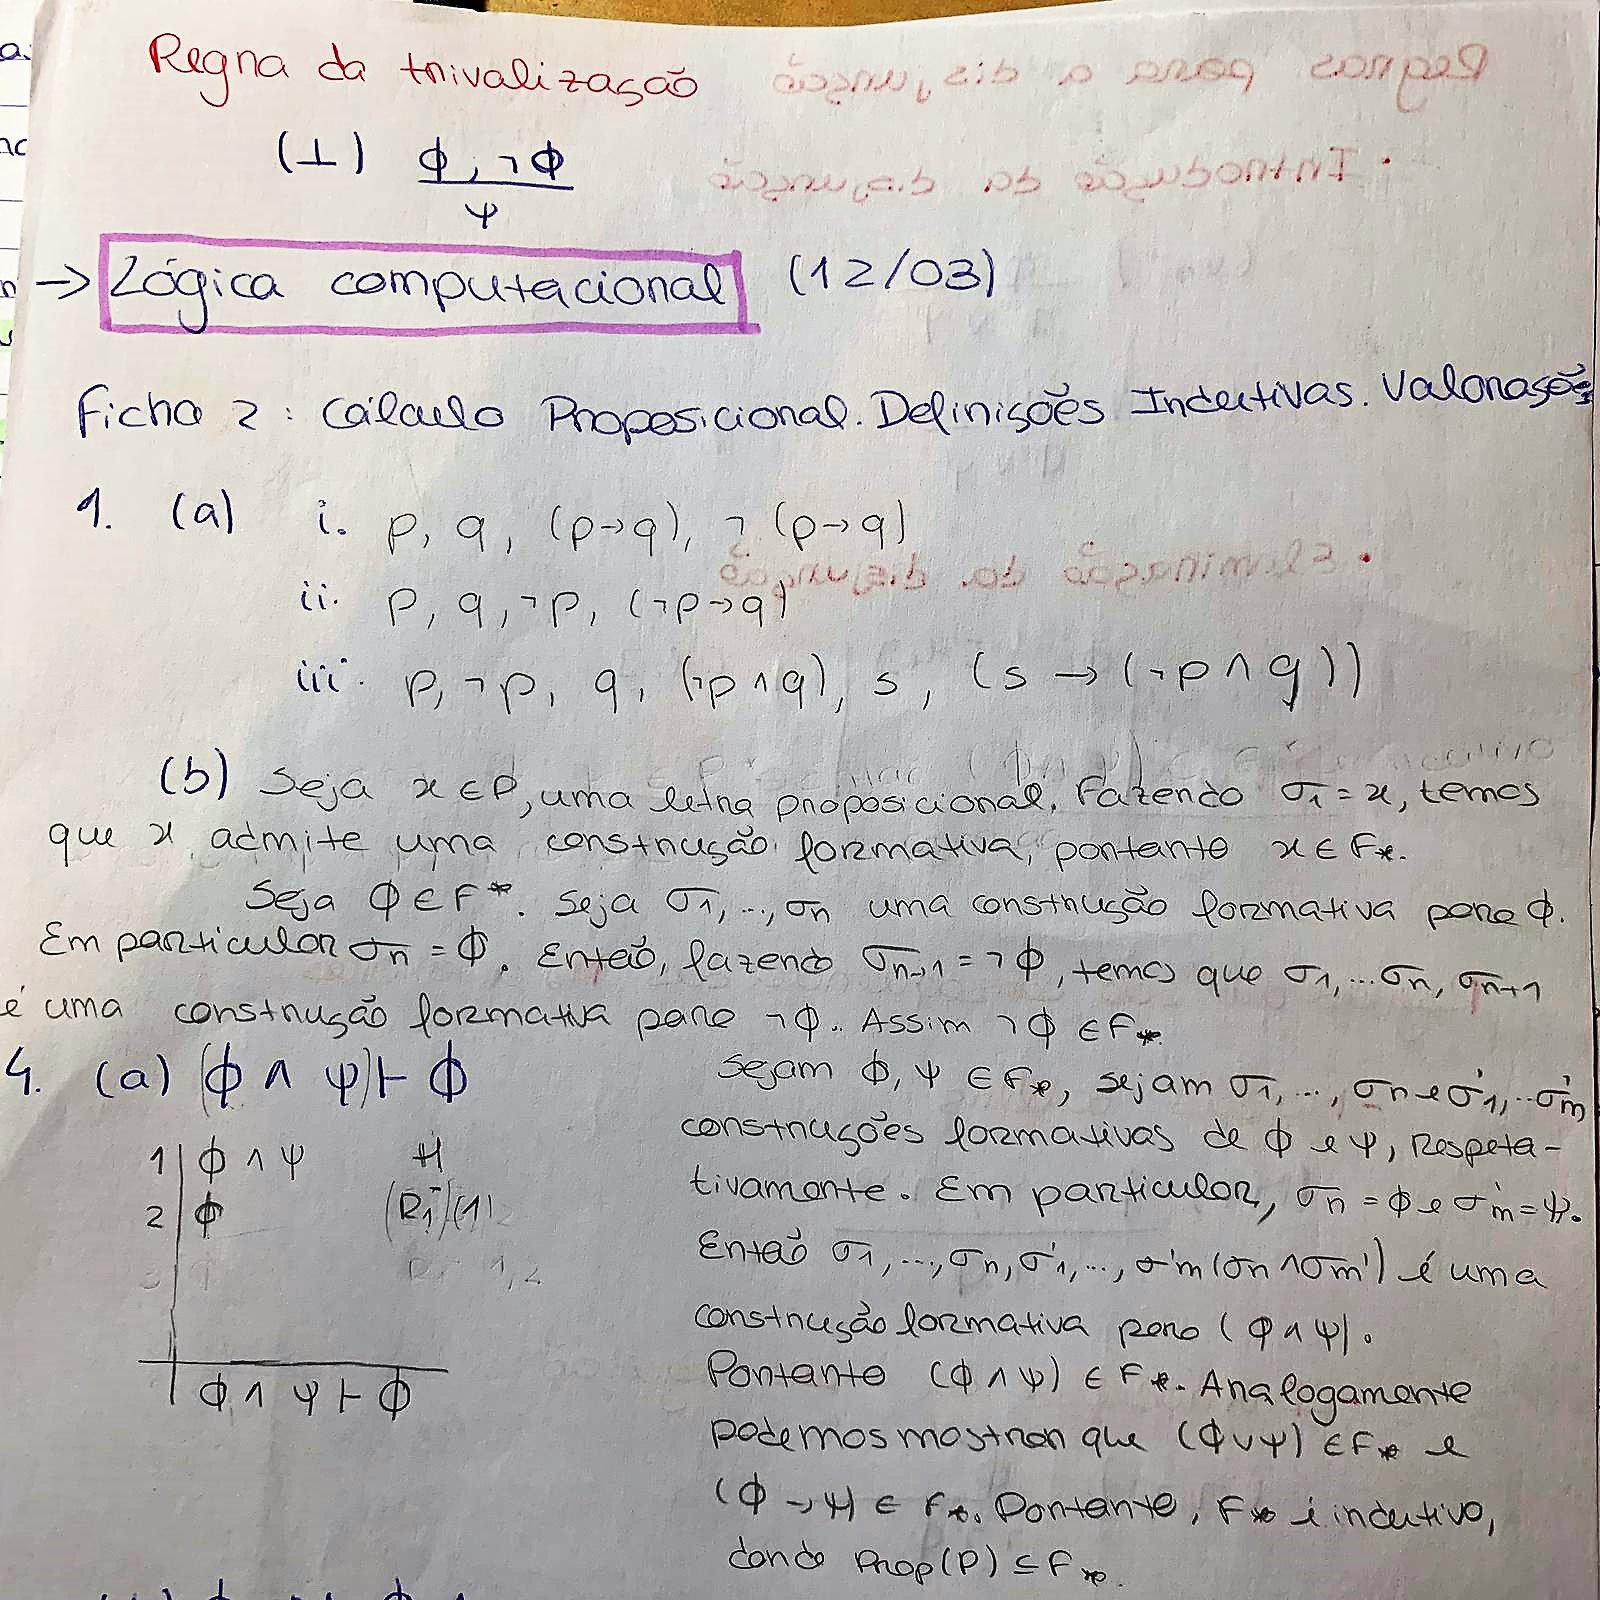 Regra da trivalização
(⊥) ϕ, ¬ϕ
ψ
→ Lógica computacional (12/03)
Ficha 2: Cálculo Proposicional. Definições Indutivas. Valorações
1. (a) i. p, q, (p→q), ¬(p→q)
ii. p, q, ¬p, (¬p→q)
iii. p, ¬p, q, (¬p∧q), s, (s→(¬p∧q))
(b) Seja x∈P, uma letra proposicional. Fazendo σ1=x, temos
que x admite uma construção formativa, portanto x∈F*.
Seja ϕ∈F*. Seja σ1,...,σn uma construção formativa para ϕ.
Em particular σn=ϕ. Então, fazendo σn+1=¬ϕ, temos que σ1,...σn, σn+1
é uma construção formativa para ¬ϕ. Assim ¬ϕ∈F*.
Sejam ϕ, ψ∈F*, sejam σ1,...,σn e σ'1,...σ'm
construções formativas de ϕ e ψ, respeta-
tivamente. Em particular, σn=ϕ e σ'm=ψ.
Então σ1,...,σn,σ'1,...,σ'm(σn∧σm') é uma
construção formativa para (ϕ∧ψ).
Portanto (ϕ∧ψ)∈F*. Analogamente
podemos mostrar que (ϕ∨ψ)∈F* e
(ϕ→ψ)∈F*. Portanto, F* é indutivo,
donde Prop(P)⊆F*.
4. (a) (ϕ∧ψ)⊢ϕ
1 ϕ∧ψ H
2 ϕ (1)
ϕ∧ψ⊢ϕ
Regras para a disjunção
• Introdução da disjunção
• Eliminação da disjunção